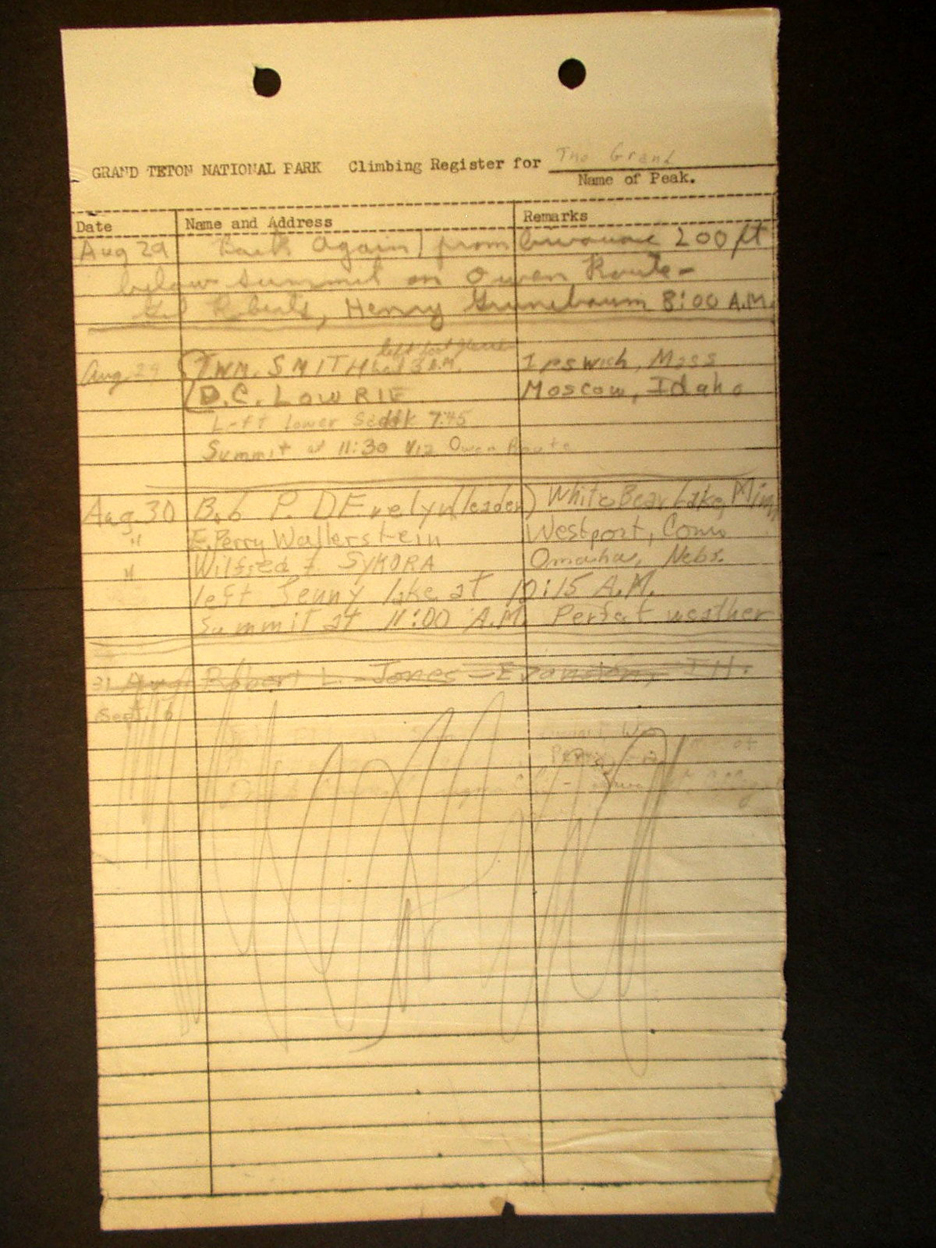 GRAND TETON NATIONAL PARK Climbing Register for The Grand
Name of Peak.
Date Name and Address Remarks
Aug 29 Back Again! from bivouac 200 ft
below summit on Owen Route-
Gil Roberts, Henry Grunebaum 8:00 A.M.
left foot glacier
Aug 29 WM. SMITH 3 A.M. Ipswich, Mass
D.C. LOWRIE Moscow, Idaho
Left lower saddle 7:45
Summit at 11:30 via Owen Route
Aug. 30 Bob P DEvelyn (leader) White Bear Lake, Minn
" E. Perry Wallerstein Westport, Conn
" Wilfred F. SYKORA Omaha, Nebr.
left Jenny lake at 10:15 A.M.
Summit at 11:00 A.M. Perfect weather
31 Aug Robert L. Jones - Evanston, Ill.
Sept. 16